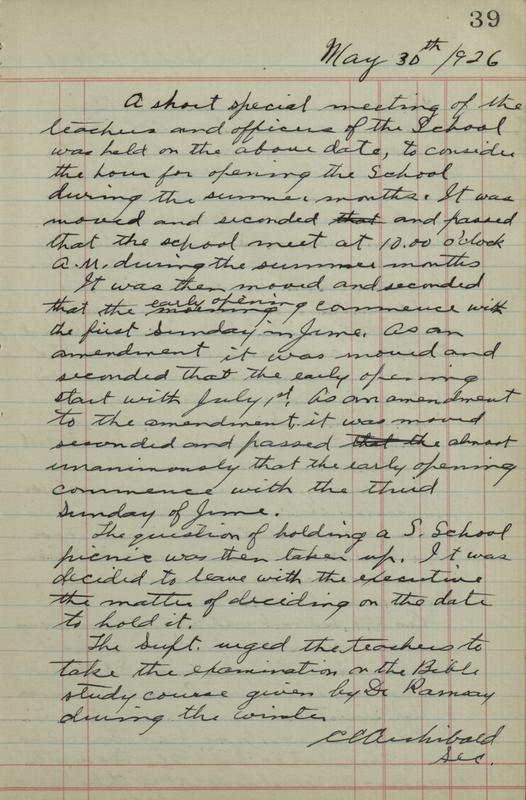 39
May 30th /926
A short special meeting of the
teachers and officers of the School
was held on the above date, to consider
the hour for opening the School
during the summer months. It was
moved and seconded that and passed
that the school meet at 10.00 o'clock
A.M. during the summer months
It was then moved and seconded
early opening
that the morning commence with
the first Sunday in June. As an
amendment it was moved and
seconded that the early opening
start with July 1st. As an amendment
to the amendment it was moved
seconded and passed that the almost
unanimously that the early opening
commence with the third
Sunday of June.
The question of holding a S. School
picnic was then taken up. It was
decided to leave with the executive
the matter of deciding on the date
to hold it.
The Supt. urged the teachers to
take the examination on the Bible
study course given by Dr Ramsay
during the winter
CC Archibald
Sec.